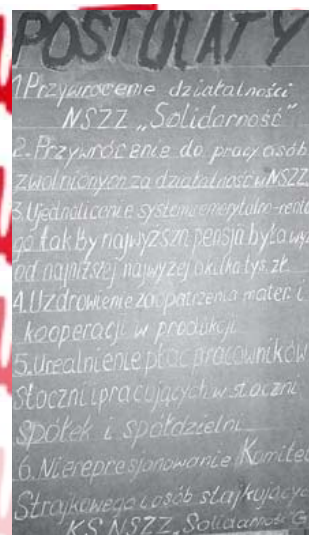 POSTULATY
1. Przywrócenie działalności
NSZZ „Solidarność"
2. Przywrócenie do pracy osób
zwolnionych za działalność w NSZZ
3. Ujednolicenie system emerytalno-rento
go tak by najwyższa pensja była wyż
od najniższej najwyżej o kilka tys. zł.
4. Uzdrowienie zaopatrzenia mater. i
kooperacji w produkcji
5. Urealnienie płac pracowników
stoczni i pracujących w stoczni
spółek i spółdzielni
6. Nierepresjonowanie Komitet
Strajkowego i osób stajkujący
KS NSZZ „Solidarność" G